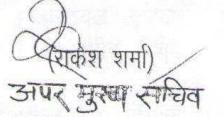 (राकेश शर्मा)
अपर मुख्य सचिव